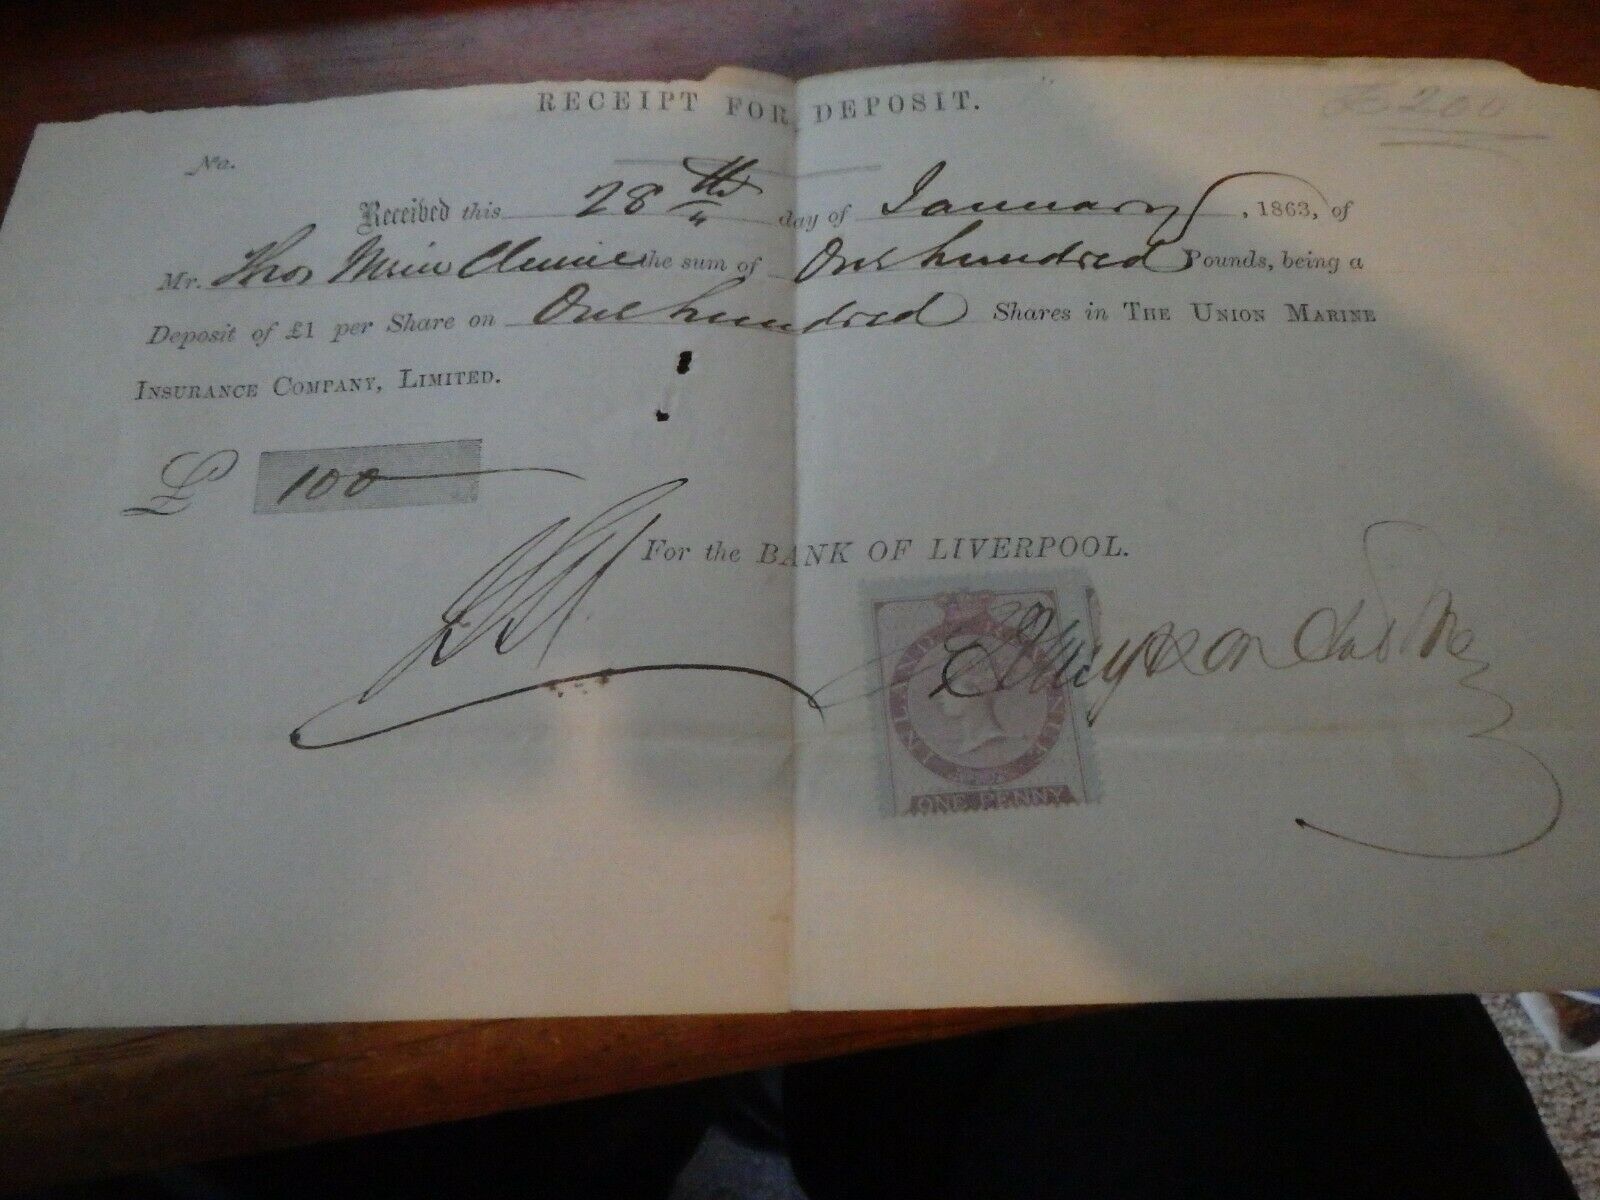 RECEIPT FOR DEPOSIT.
£200
No.
Received this 28th day of January, 1863, of
Mr. Thos the sum of One hundred Pounds, being a
Deposit of £1 per Share on One hundred Shares in THE UNION MARINE
INSURANCE COMPANY, LIMITED.
£ 100
For the BANK OF LIVERPOOL.
INLAND REVENUE
ONE PENNY